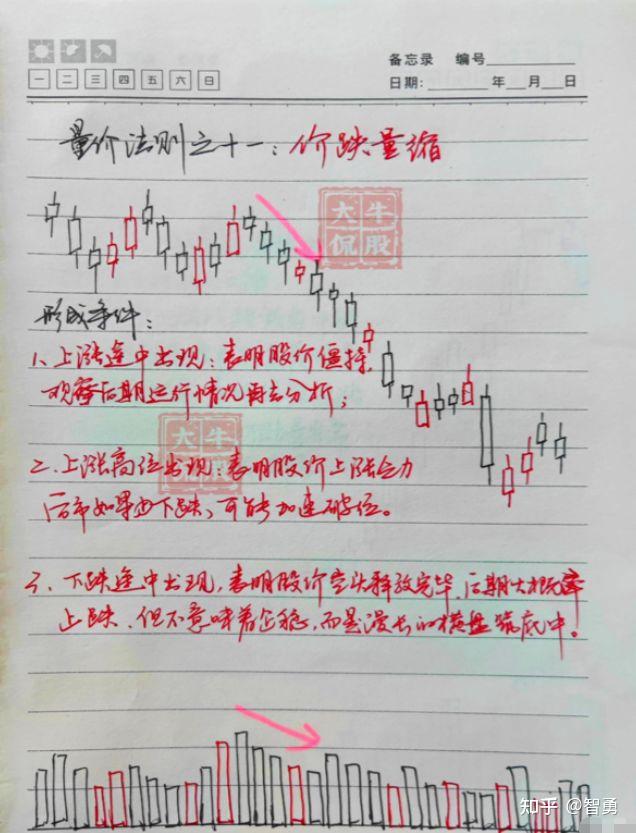 备忘录 编号
一 二 三 四 五 六 日
日期: 年 月 日
量价法则之十一：价跌量缩
大牛
侃股
形成条件：
1、上涨途中出现：表明股价僵持，
观察后期运行情况再去分析；
大牛
侃股
2、上涨高位出现：表明股价上涨乏力
后市如果由下跌，可能加速破位。
3、下跌途中出现，表明股价空头释放完毕，后期大概率
止跌，但不意味着企稳，而是漫长的横盘筑底中！
知乎 @智勇